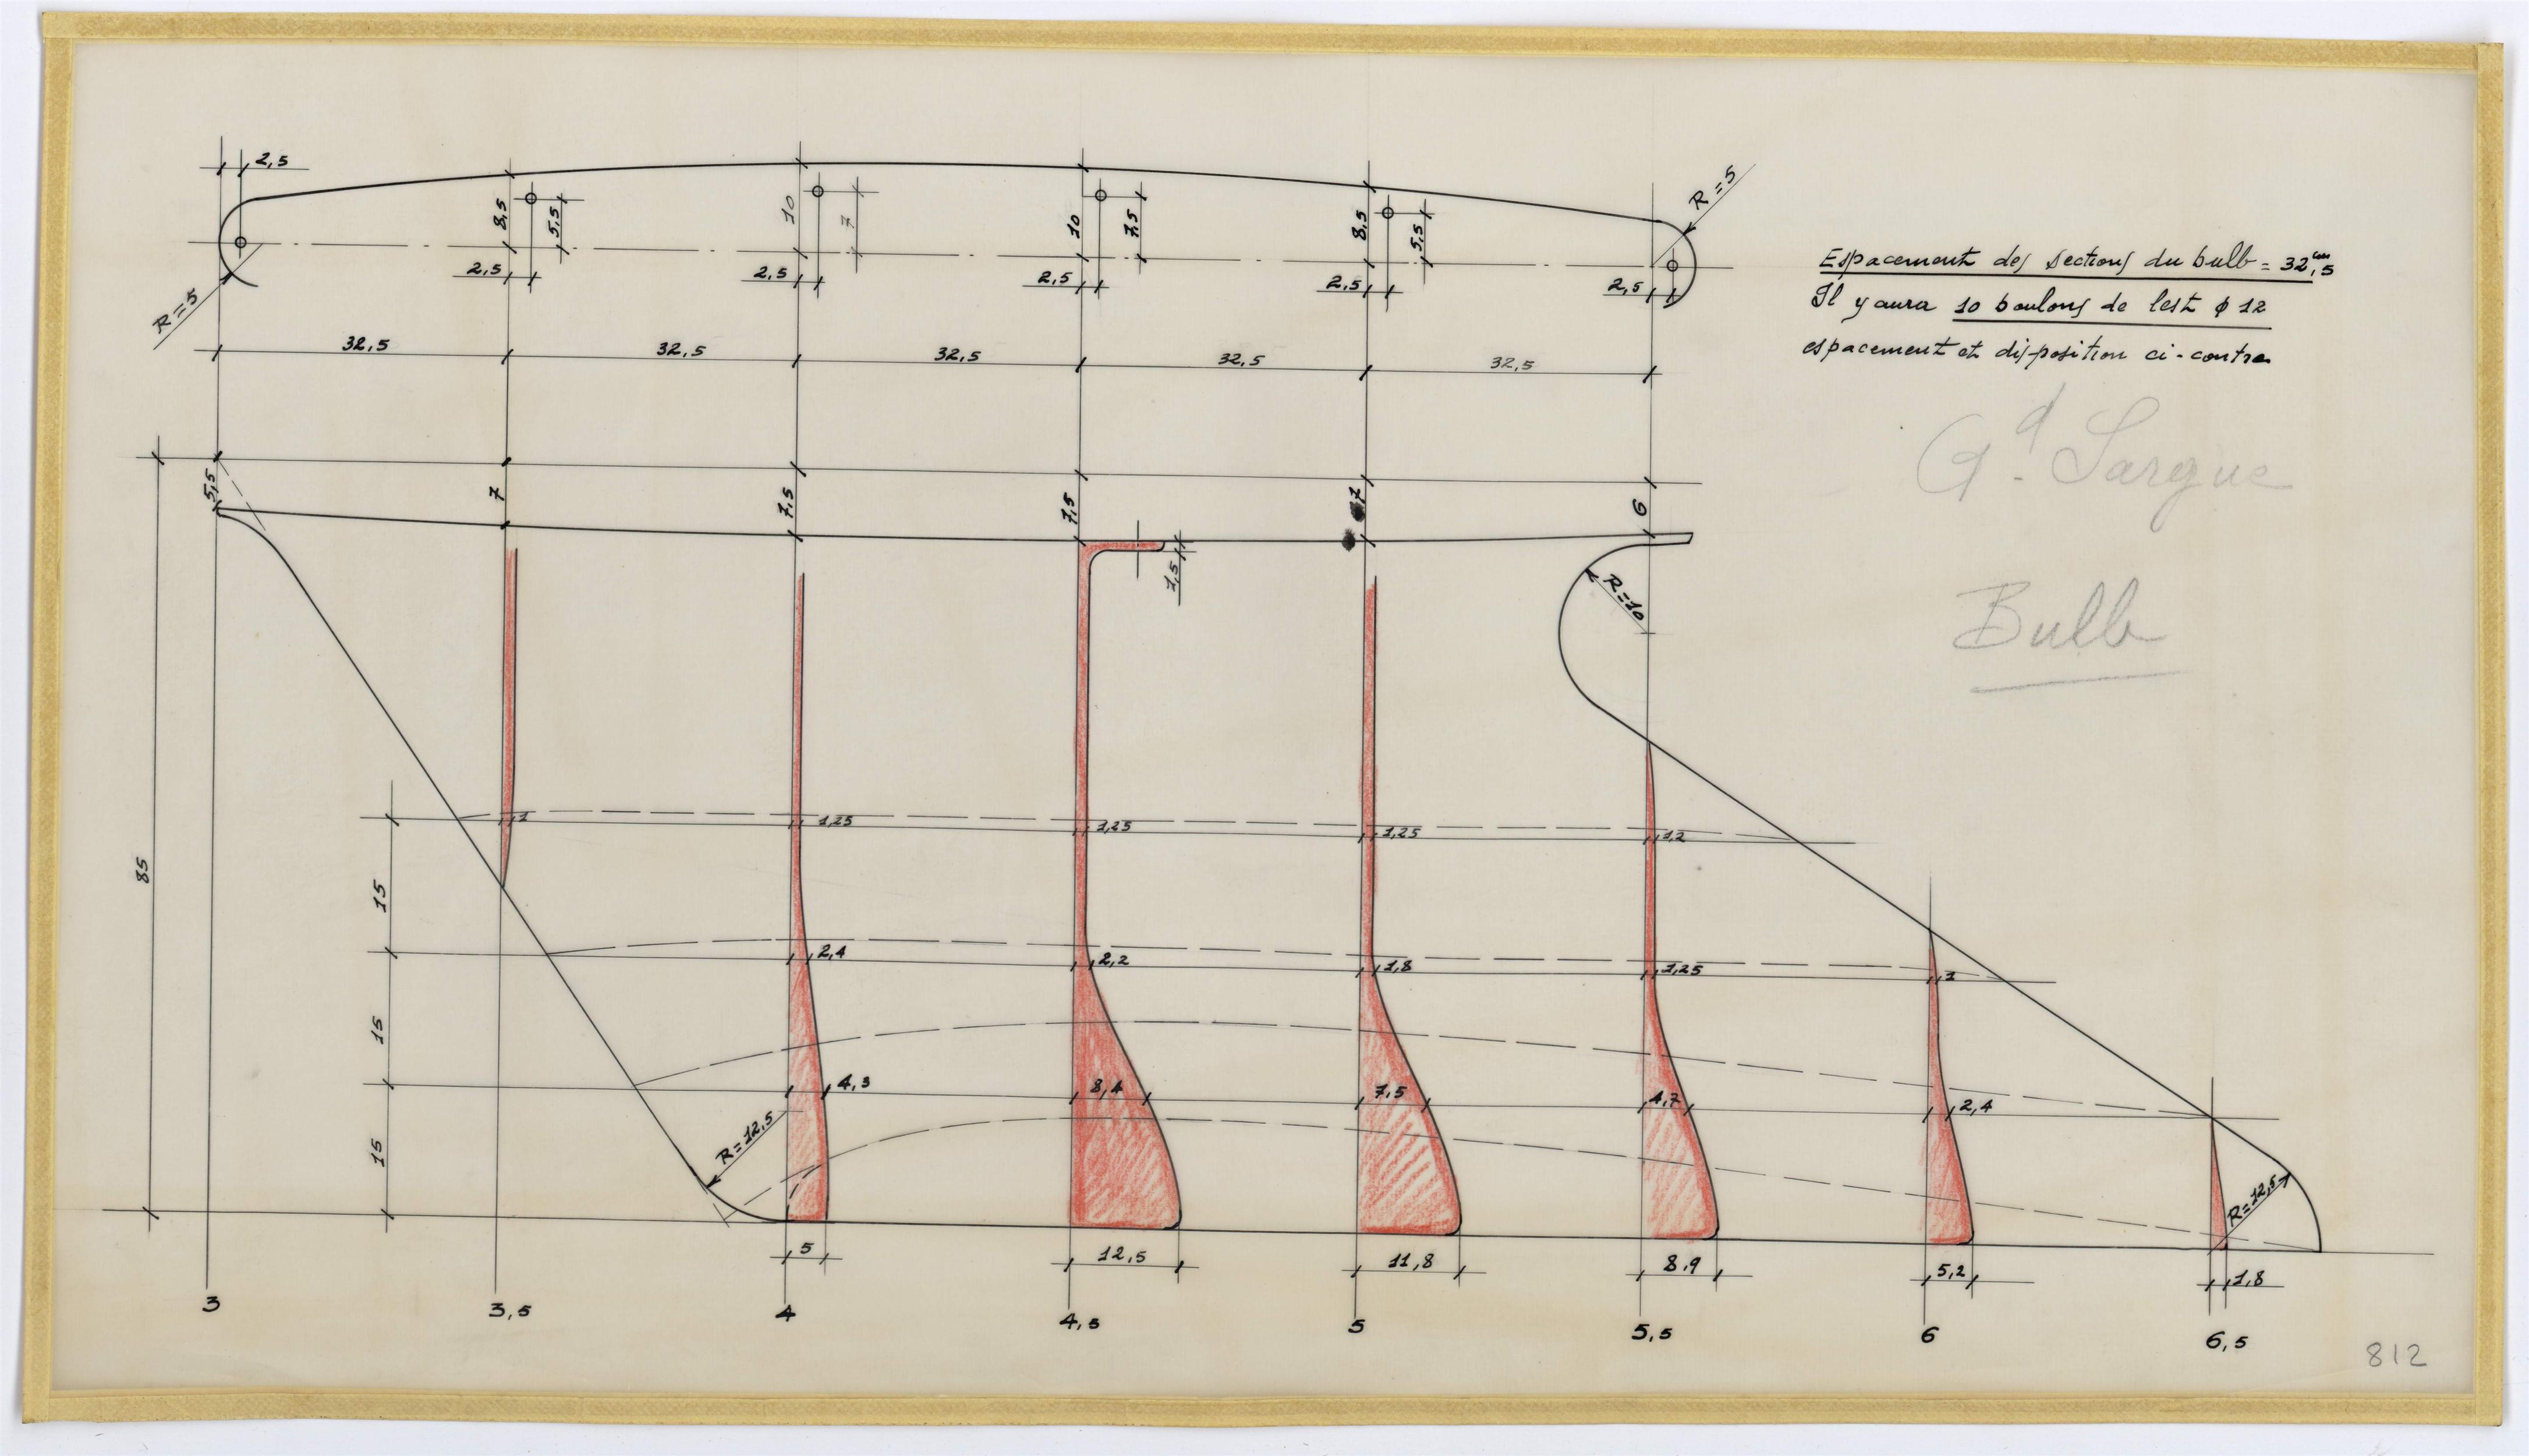 2,5
R=5
8,5
5,5
2,5
10
7
2,5
10
7,5
2,5
8,5
5,5
2,5
R=5
2,5
R=5
Espacement des sections du bulb = 32cm,5
Il y aura 10 boulons de lest ϕ 12
espacement et disposition ci-contre
32,5
32,5
32,5
32,5
32,5
Gd. Sargue
Bulb
5,5
7
7,5
7,5
7
6
1,5
R=10
85
1
1,25
1,25
1,25
1,2
15
2,4
2,2
1,8
1,25
1
15
4,3
8,4
7,5
4,7
2,4
15
R=12,5
R=12,5
5
12,5
11,8
8,9
5,2
1,8
3
3,5
4
4,5
5
5,5
6
6,5
812